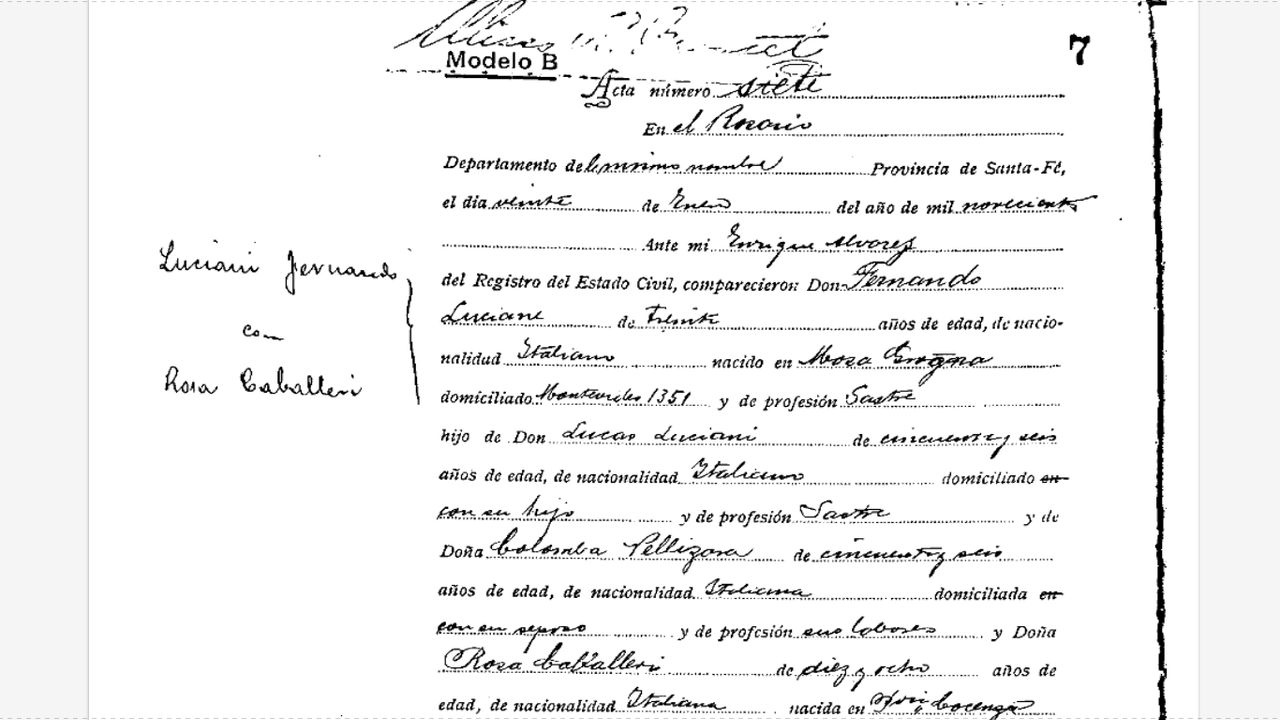 7
Modelo B
Acta número siete
En el Rosario
Departamento del mismo nombre Provincia de Santa-Fé,
el dia veinte de Enero del año de mil novecientos
Ante mi Enrique Alvarez
Luciani Fernando
del Registro del Estado Civil, comparecieron: Don Fernando
Luciani de treinta años de edad, de nacio-
con
nalidad Italiano nacido en Mosa
Rosa Caballeri
domiciliado Montevideo 1351 y de profesión Sastre
hijo de Don Lucas Luciani de cincuenta y seis
años de edad, de nacionalidad Italiano domiciliado en
con su hijo y de profesión Sastre y de
Doña Colomba Pellizara de cincuenta y seis
años de edad, de nacionalidad Italiana domiciliada en
con su esposo y de profesión sus labores y Doña
Rosa Caballeri de diez y ocho años de
edad, de nacionalidad Italiana nacida en